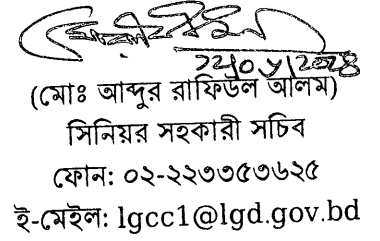 (মোঃ আব্দুর রাফিউল আলম)
সিনিয়র সহকারী সচিব
ফোন: ০২-২২৩৩৫৩৬২৫
ই-মেইল: lgcc1@lgd.gov.bd